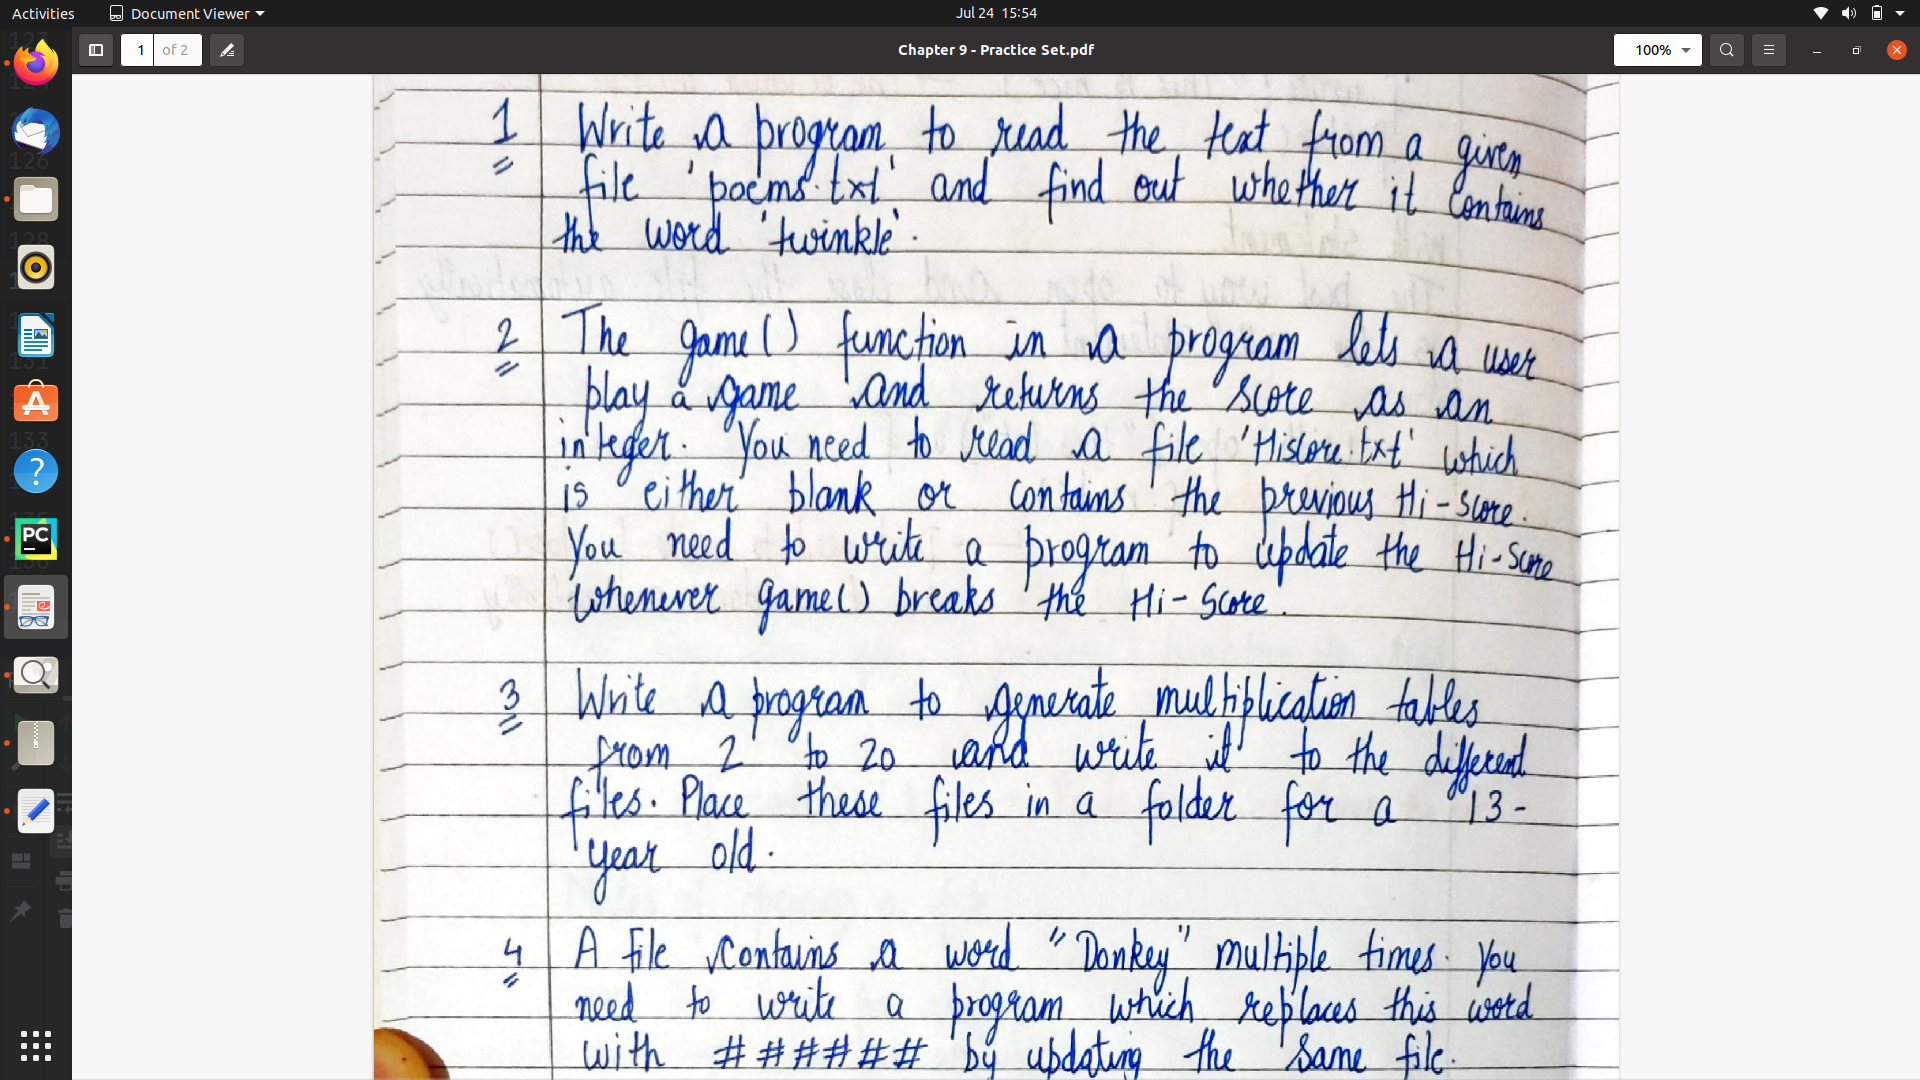 Activities
Document Viewer
Jul 24 15:54
1
of 2
Chapter 9 - Practice Set.pdf
100%
1 Write a program to read the text from a given
file 'poems.txt' and find out whether it contains
the word 'twinkle'.
2 The game() function in a program lets a user
play a game and returns the score as an
integer. You need to read a file 'Hiscore.txt' which
is either blank or contains the previous Hi-Score.
You need to write a program to update the Hi-Score
whenever game() breaks the Hi-Score.
3 Write a program to generate multiplication tables
from 2 to 20 and write it to the different
files. Place these files in a folder for a 13-
year old.
4 A file contains a word "Donkey" multiple times. You
need to write a program which replaces this word
with ###### by updating the same file.
PC